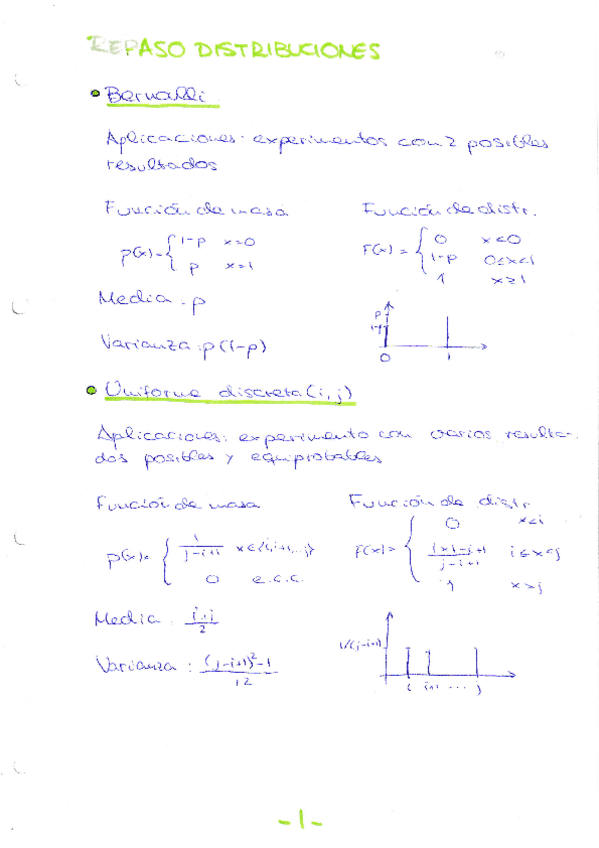 REPASO DISTRIBUCIONES
• Bernoulli
Aplicaciones: experimentos con 2 posibles
resultados
Función de masa
p(x)= { 1-p x=0
p x=1
Función de distr.
F(x) = { 0 x<0
1-p 0≤x<1
1 x≥1
Media: p
Varianza: p(1-p)
p
1-p
0 1
• Uniforme discreta (i,j)
Aplicaciones: experimento con varios resulta-
dos posibles y equiprobables
Función de masa
p(x)= { 1/(j-i+1) x∈{i,i+1,...j}
0 e.c.c.
Función de distr.
F(x)= { 0 x<i
(⌊x⌋-i+1)/(j-i+1) i≤x<j
1 x>j
Media: (i+j)/2
Varianza: ((j-i+1)²-1)/12
1/(j-i+1)
i i+1 ... j
-1-